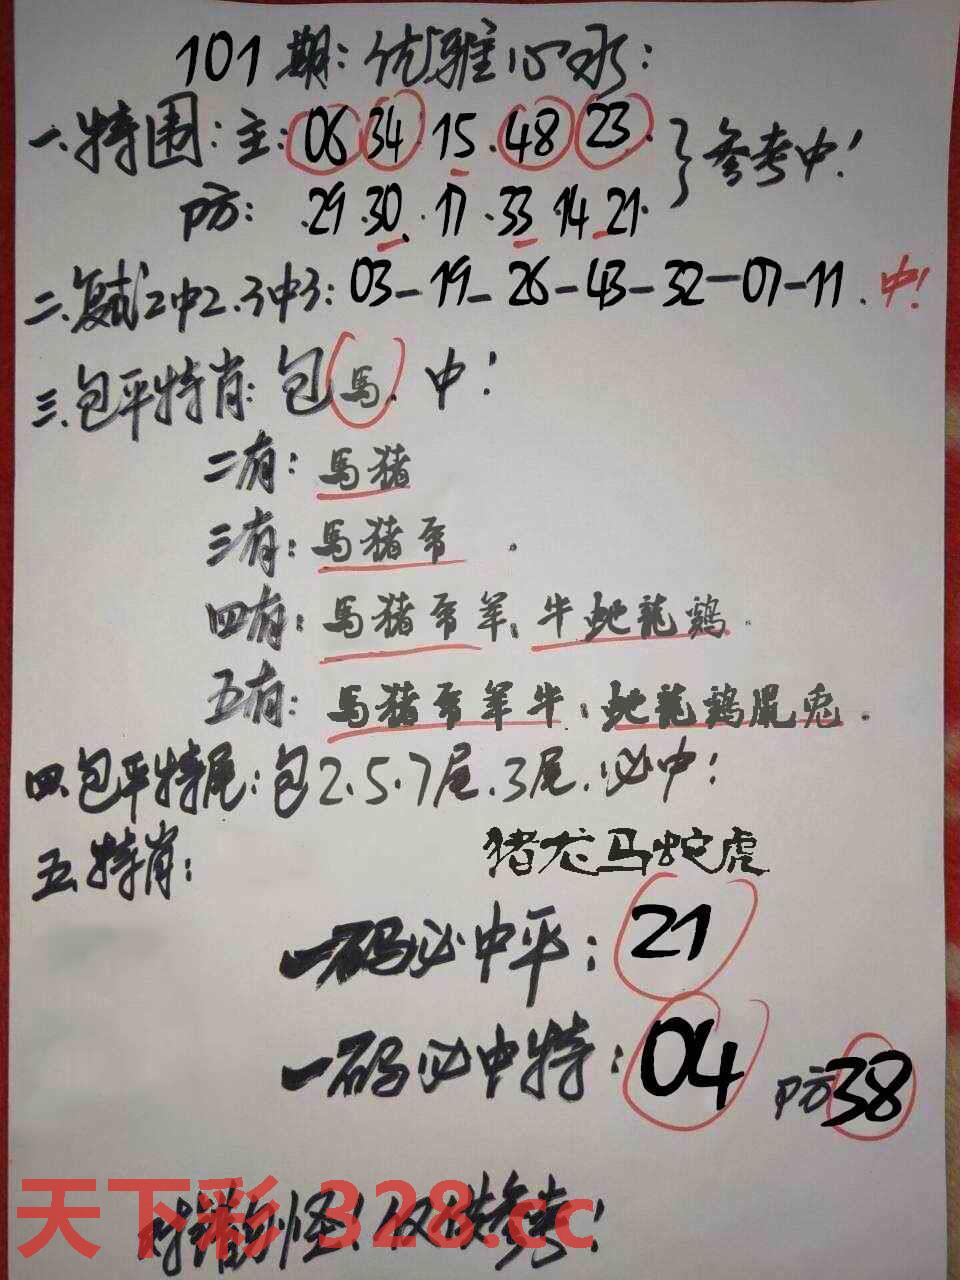 101期:优雅心水:
一.特围:主:06 34 15.48 23.}参考中!
防: .29.30.17.33.14.21.
二.复试2中2.3中3:03-19-26-43-32-07-11.中!
三.包平特肖:包马.中!
二有:馬猪
三有:馬猪帝.
四有:馬猪帝羊,牛蛇龍鷄.
五有:馬猪帝羊牛:蛇龍鷄鼠兔.
四.包平特尾:包2.5.7尾.3尾.必中!
五.特肖:
猪龙马蛇虎
一码必中平:21
一码必中特:04 防38
天下彩 328.cc
怪!仅供参考!